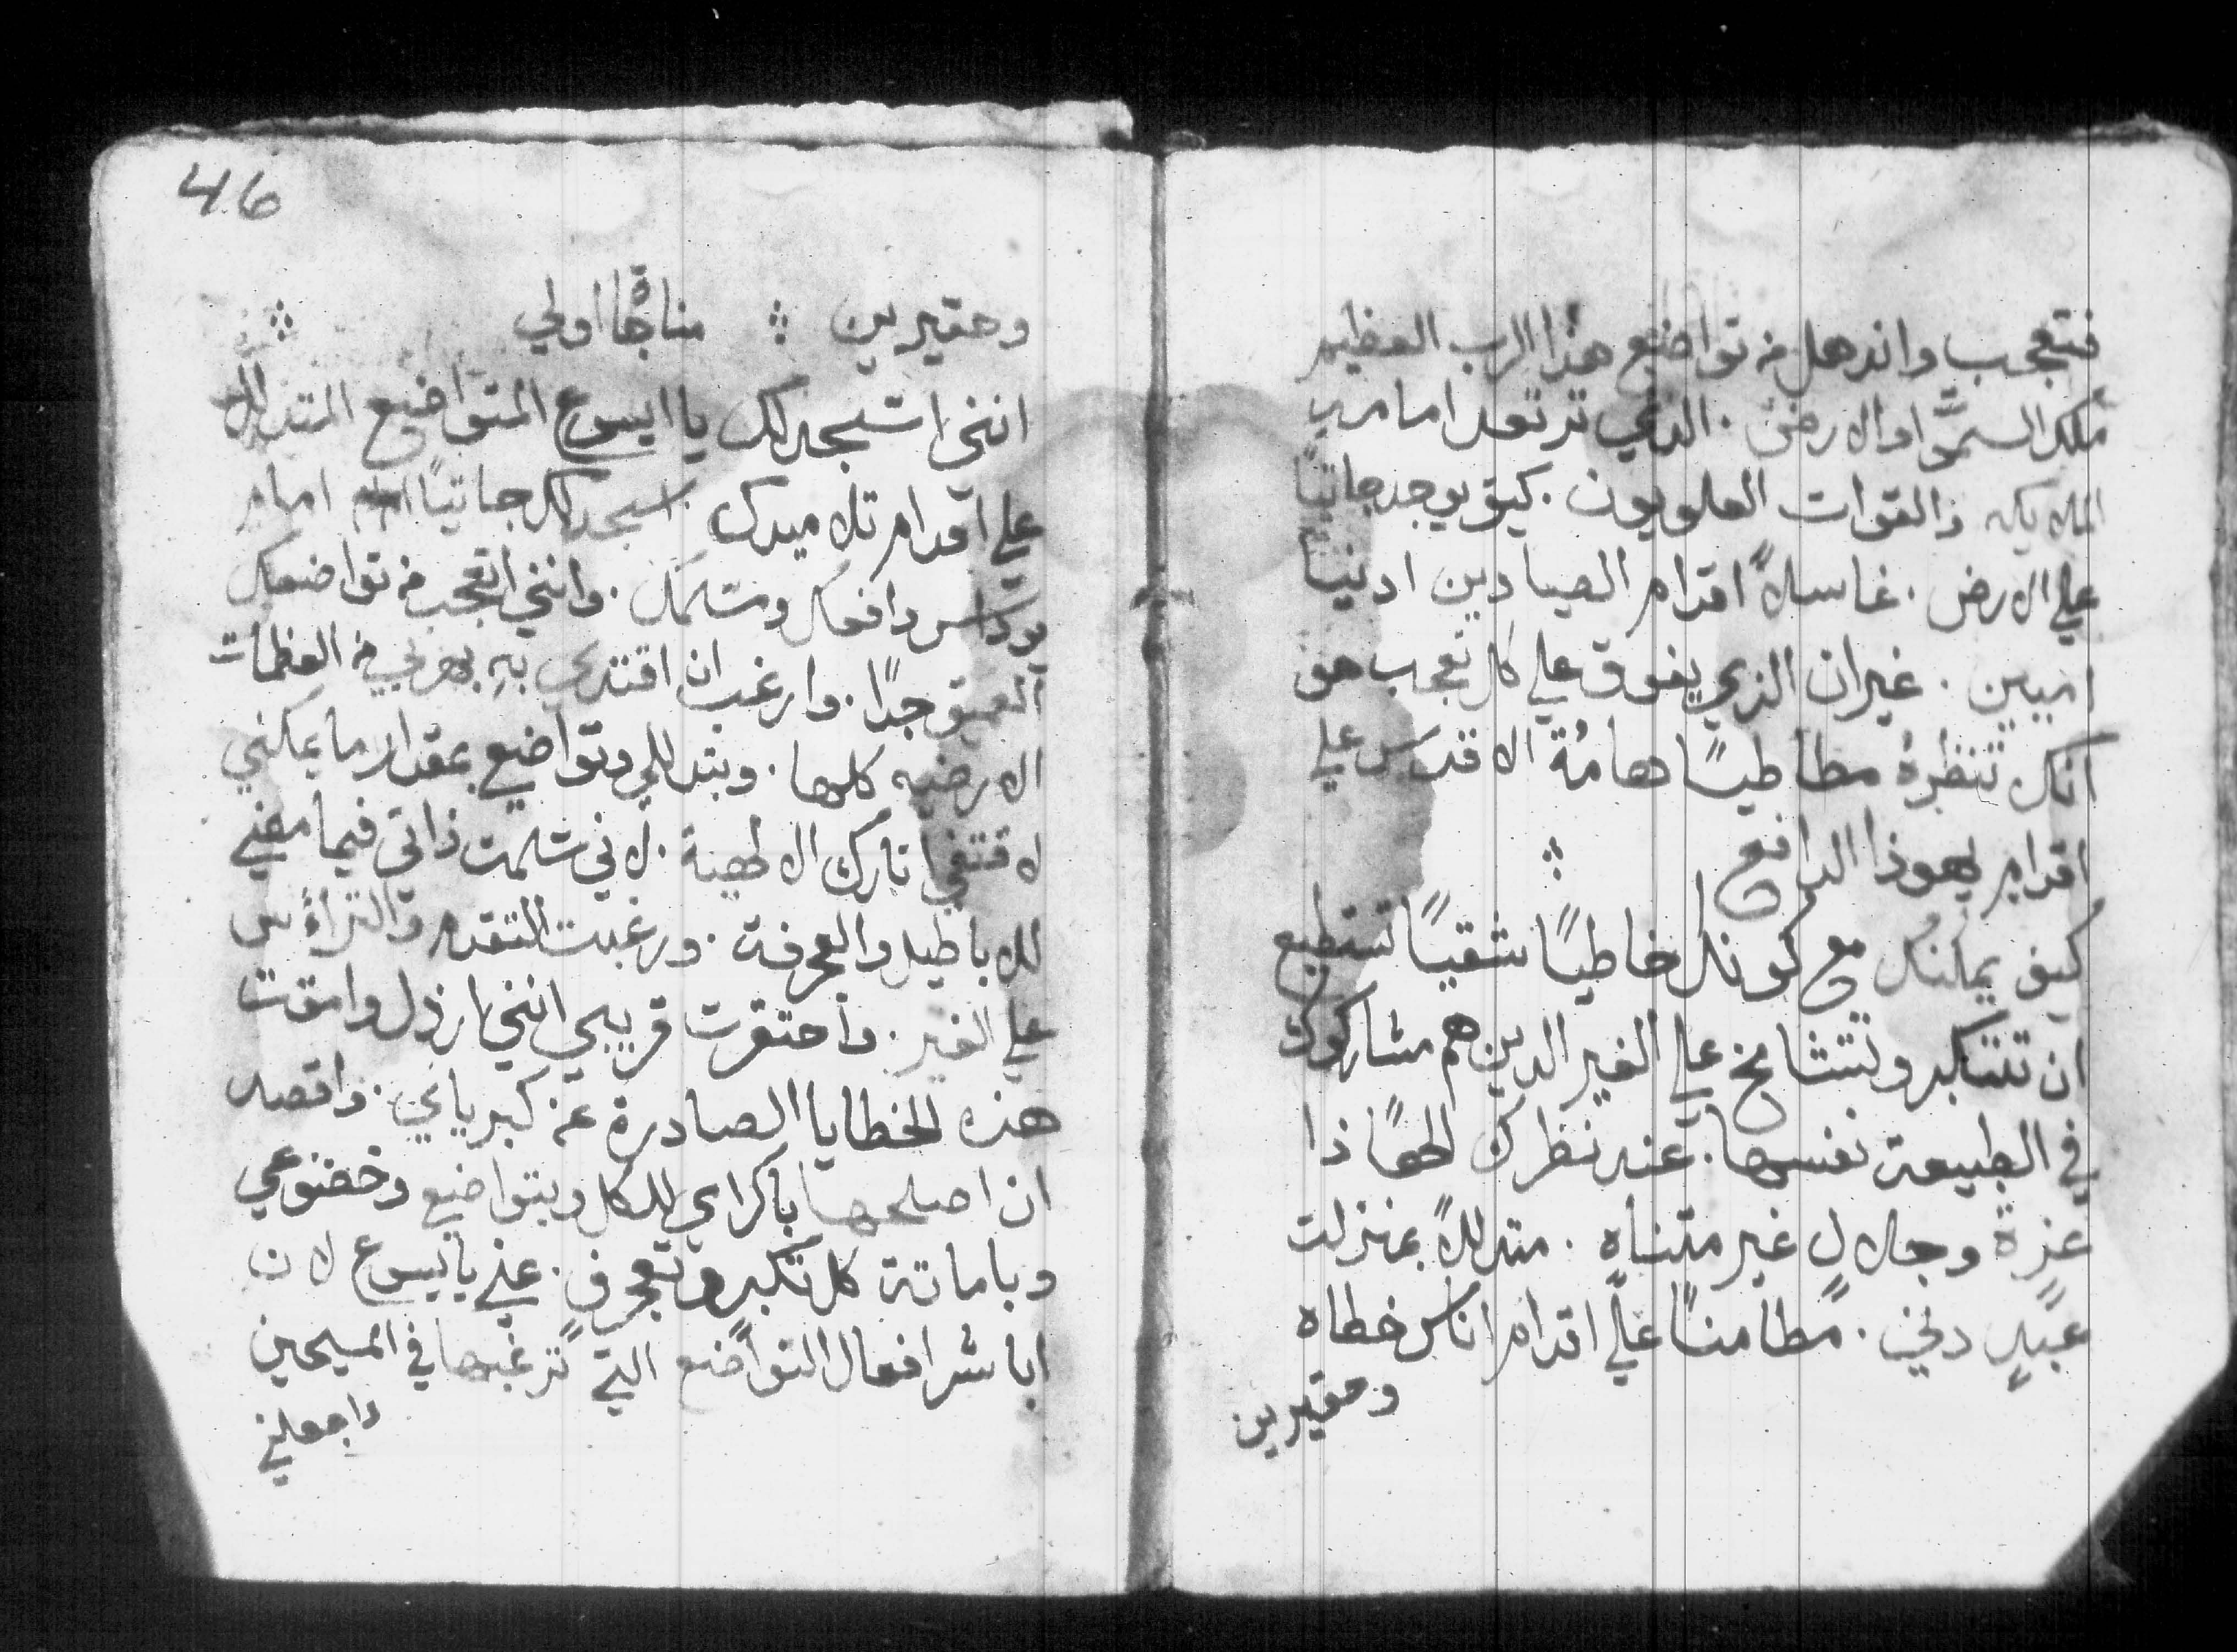 فتعجب واندهل من تواضع هذا الرب العظيم
ملك السموات والارض . الذي ترتعد امامه
الملايكه والقوات العلويون . كيف يوجد جاثيًا
علي الارض . غاسلاً اقدام الصيادين ادنيا
اميين . غير ان الذي يفوق علي كل تعجب هو
انك تنظرهُ مطاطيًا هامتهُ الاقدس علي
اقدام يهوذا الدافع ؞
كيف يمكنك مع كونك خاطيًا شقيًا تستطيع
ان تتكبر وتتشامخ علي الغير الدين هم مشاركوك
في الطبيعة نفسها . عند نظرك الهًا ذا
عزة وجلالٍ غير متناهٍ . متدللاً بمنزلت
عبدٍ دني . مطامنًا علي اقدام اناس خطاه
وحقيرين
46
وحقيرين ؞ مناجاة اولي ؞
انني اسجد لك يا ايسوع المتواضع المتدلل
علي اقدام تلاميدك . اسجد لك جاثيًا امام
يوداس دافعك ومسلمك . وانني اتعجب من تواضعك
العميق جدًا . وارغب ان اقتدي بهِ بهربي من العظمات
الارضيه كلها . وبتدللي وتواضعي بمقدار ما يمكنني
لاقتفي اثارك الالهية . لاني سلمت ذاتي فيما مضي
للاباطيل والعجرفة . ورغبت التقدم والتراؤس
علي الغير . واحتقرت قريبي انني ارذل وامقت
هذه الخطايا الصادرة عن كبريايي . واقصد
ان اصلحها باكرامي للكل وبتواضعي وخضوعي
وباماتة كل تكبر وتعجرف . عني يا يسوع لان
اباشر افعال التواضع التي ترغبها في المسيحين
واجعلني